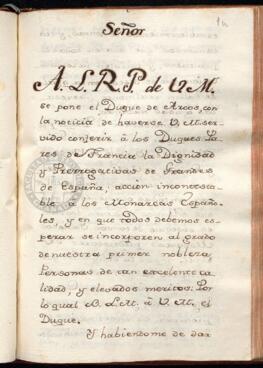 Señor
A. L. R. P. de V. M.
se pone el Duque de Arcos, con
la noticia de haverse V. M. ser
vido conferir à los Duques Pa
res de Francia la Dignidad
y Prerrogativas de Grandes
de España, accion incontes
able à los Monarcas Españo
les, y en que todos debemos es
perar se incorporen al grado
de nuestra primer nobleza,
Personas de tan excelente ca
lidad, y elevados meritos: Por
lo qual B. L. M. à V. M. el
Duque.
Y habiendome de dar